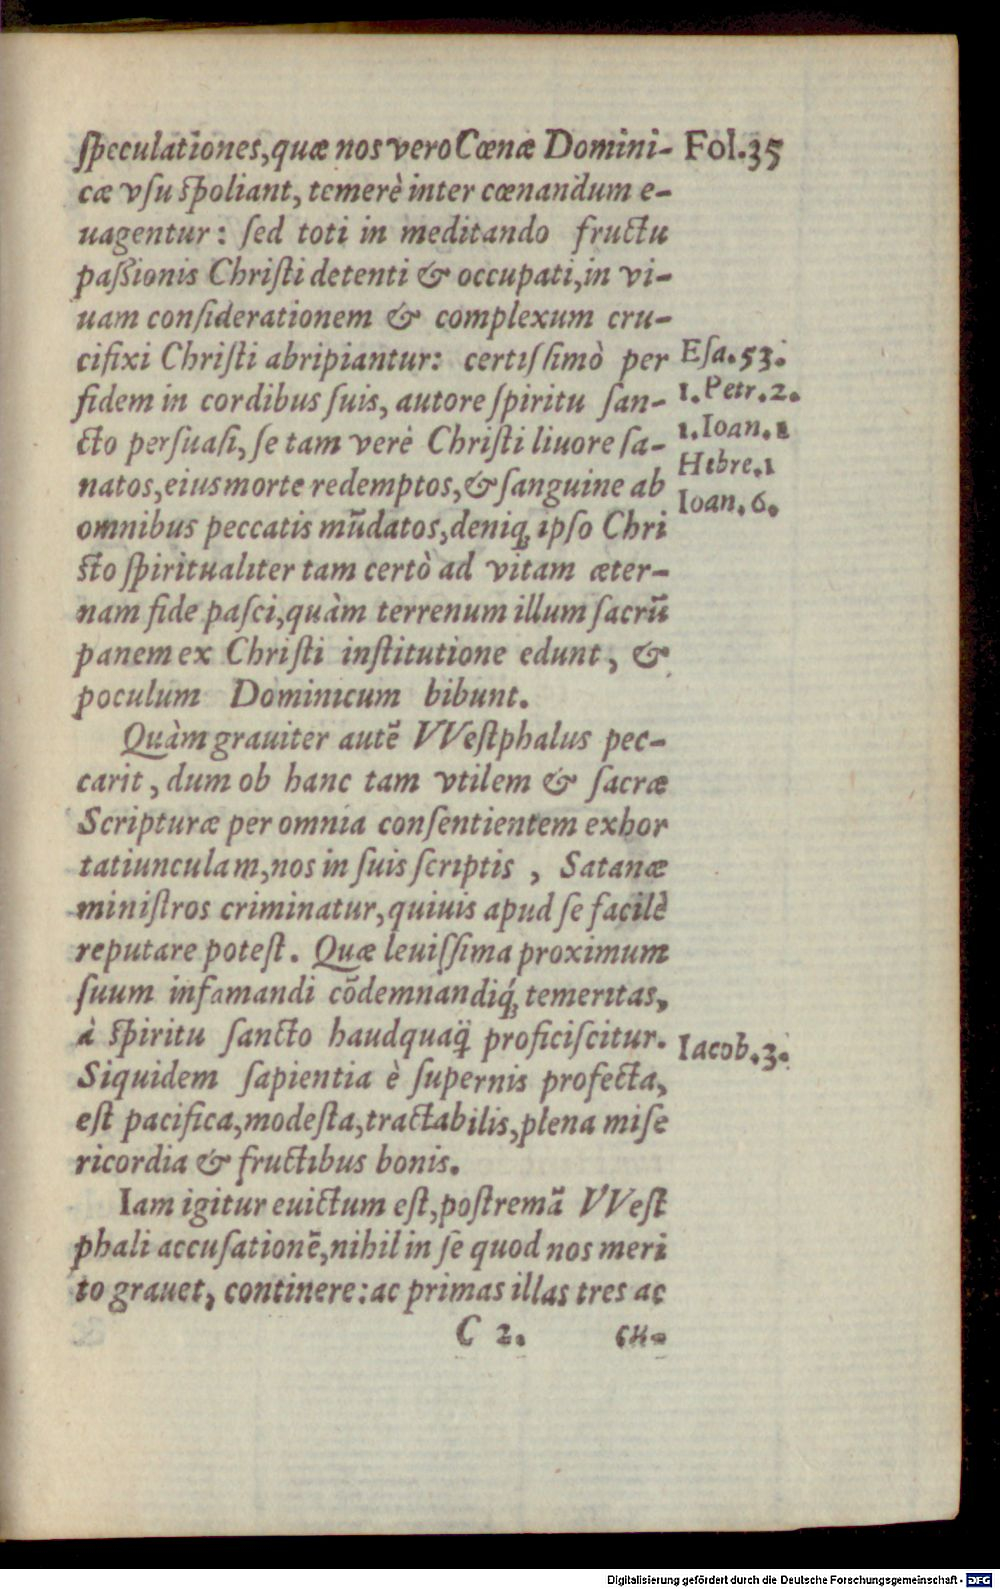 ſpeculationes,quæ nos vero Cœnæ Domini- Fol.35
cæ vſu ſpoliant, temerè inter cœnandum e-
uagentur: ſed toti in meditando fructu
paſſionis Chriſti detenti & occupati,in vi-
uam conſiderationem & complexum cru-
cifixi Chriſti abripiantur: certiſſimò per
Eſa.53.
fidem in cordibus ſuis, autore ſpiritu ſan-
1.Petr.2.
cto perſuaſi, ſe tam verè Chriſti liuore ſa-
1.Ioan.1
natos,eius morte redemptos,& ſanguine ab
Hebre.1
omnibus peccatis mūdatos,deniq; ipſo Chri
Ioan.6.
ſto ſpiritualiter tam certò ad vitam æter-
nam fide paſci,quàm terrenum illum ſacrū
panem ex Chriſti inſtitutione edunt, &
poculum Dominicum bibunt.
Quàm grauiter autē VVeſtphalus pec-
carit, dum ob hanc tam vtilem & ſacræ
Scripturæ per omnia conſentientem exhor
tatiunculam,nos in ſuis ſcriptis, Satanæ
miniſtros criminatur,quiuis apud ſe facilè
reputare poteſt. Quæ leuiſſima proximum
ſuum infamandi cōdemnandiq́; temeritas,
à ſpiritu ſancto haudquaq̈ proficiſcitur.
Iacob.3.
Siquidem ſapientia è ſupernis profecta,
eſt pacifica,modeſta,tractabilis,plena miſe
ricordia & fructibus bonis.
Iam igitur euictum eſt,poſtremā VVeſt
phali accuſationē,nihil in ſe quod nos meri
to grauet, continere:ac primas illas tres ac
C 2. cu-
Digitalisierung gefördert durch die Deutsche Forschungsgemeinschaft - DFG